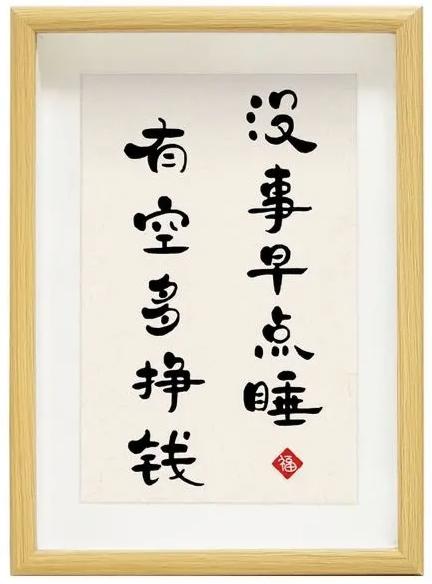 没事早点睡
有空多挣钱
福